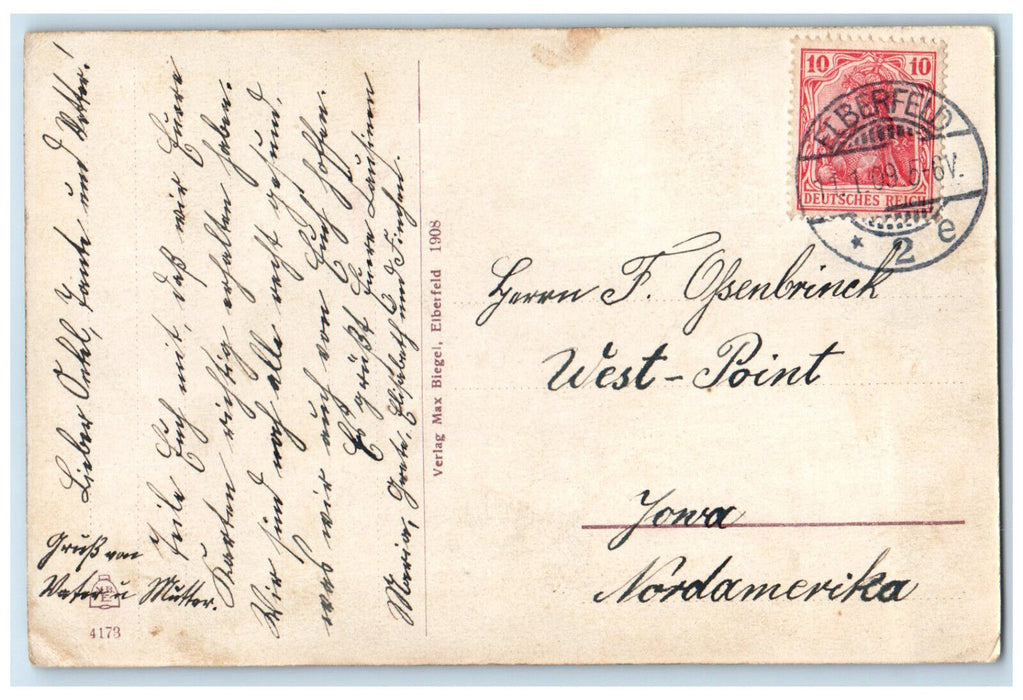 Lieber Onkel, Tante und Vetter!
Teile Euch mit, daß wir Euere
Karten richtig erhalten haben.
Wir sind noch alle recht gesund,
was wir auch von Euch hoffen.
Es grüßt Euere Cousinen
Maria, Grete, Elisabeth und Finchen.
Gruß von
Vater u Mutter.
4173
Verlag Max Biegel, Elberfeld 1908
10 10
DEUTSCHES REICH
ELBERFELD
1.09 5-6V.
* 2 e
Herrn F. Ossenbrinck
West-Point
Jowa
Nordamerika